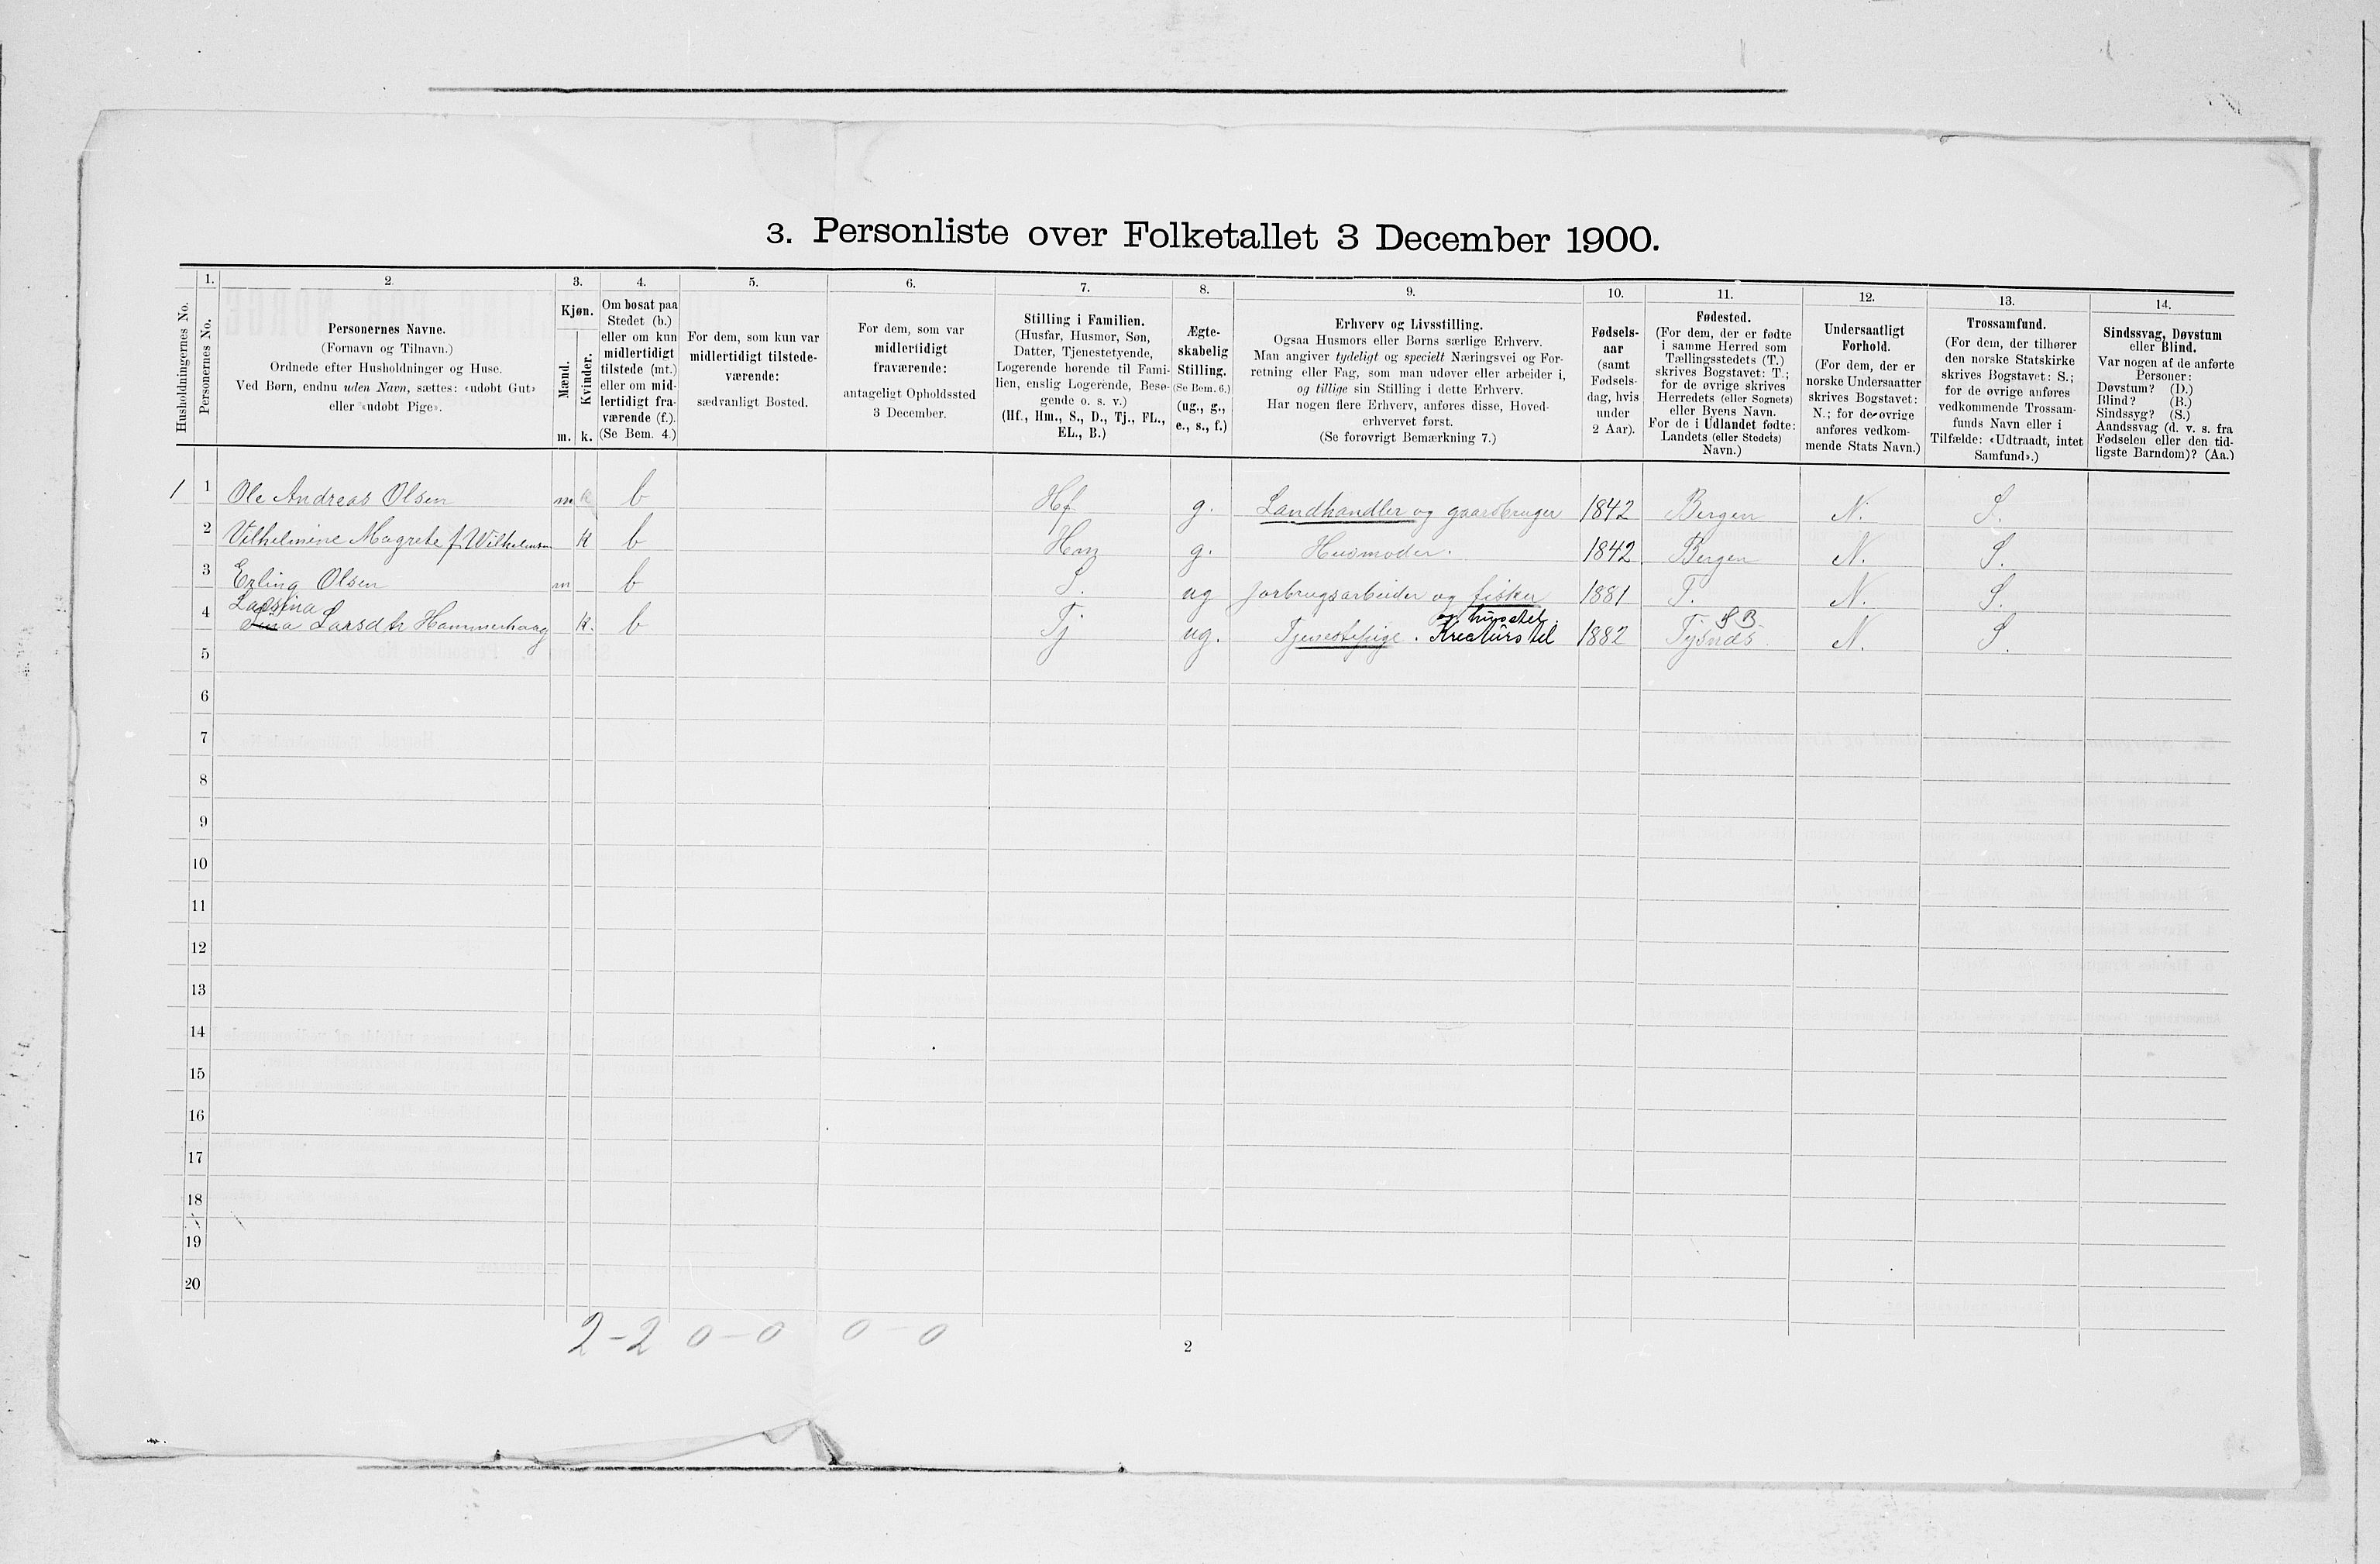 3. Personliste over Folketallet 3 December 1900.
Husholdningernes No.
1.
Personernes No.
2.
Personernes Navne.
(Fornavn og Tilnavn.)
Ordnede efter Husholdninger og Huse.
Ved Børn, endnu uden Navn, sættes: «udøbt Gut»
eller «udøbt Pige».
3.
Kjøn.
Mænd.
Kvinder.
m.
k.
4.
Om bosat paa
Stedet (b.)
eller om kun
midlertidigt
tilstede (mt.)
eller om mid-
lertidigt fra-
værende (f.).
(Se Bem. 4.)
5.
For dem, som kun var
midlertidigt tilstede-
værende:
sædvanligt Bosted.
6.
For dem, som var
midlertidigt
fraværende:
antageligt Opholdssted
3 December.
7.
Stilling i Familien.
(Husfar, Husmor, Søn,
Datter, Tjenestetyende,
Logerende hørende til Fami-
lien, enslig Logerende, Besø-
gende o. s. v.)
(Hf., Hm., S., D., Tj., FL.,
EL., B.)
8.
Ægte-
skabelig
Stilling.
(Se Bem. 6.)
(ug., g.,
e., s., f.)
9.
Erhverv og Livsstilling.
Ogsaa Husmors eller Børns særlige Erhverv.
Man angiver tydeligt og specielt Næringsvei og For-
retning eller Fag, som man udøver eller arbeider i,
og tillige sin Stilling i dette Erhverv.
Har nogen flere Erhverv, anføres disse, Hoved-
erhvervet først.
(Se forøvrigt Bemærkning 7.)
10.
Fødsels-
aar
(samt
Fødsels-
dag, hvis
under
2 Aar).
11.
Fødested.
(For dem, der er fødte
i samme Herred som
Tællingsstedets (T.)
skrives Bogstavet: T.;
for de øvrige skrives
Herredets (eller Sognets)
eller Byens Navn.
For de i Udlandet fødte:
Landets (eller Stedets)
Navn.)
12.
Undersaatligt
Forhold.
(For dem, der er
norske Undersaatter
skrives Bogstavet:
N.; for de øvrige
anføres vedkom-
mende Stats Navn.)
13.
Trossamfund.
(For dem, der tilhører
den norske Statskirke
skrives Bogstavet: S.;
for de øvrige anføres
vedkommende Trossam-
funds Navn eller i
Tilfælde: «Udtraadt, intet
Samfund».)
14.
Sindssvag, Døvstum
eller Blind.
Var nogen af de anførte
Personer:
Døvstum? (D.)
Blind? (B.)
Sindssyg? (S.)
Aandssvag (d. v. s. fra
Fødselen eller den tid-
ligste Barndom)? (Aa.)
1 1 Ole Andreas Olsen m b Hf g. Landhandler og gaardbruger 1842 Bergen N. S.
2 Vilhelmine Magrete f. Wilhelmsen k b Hm g. Husmoder. 1842 Bergen N. S.
3 Erling Olsen m b S. ug jorbrugsarbeider og fisker 1881 T. N. S.
4 Larsdtr Hammerhaug k. b Tj ug. Tjenestepige. Kreaturstel 1882 Tysnæs N. S.
og husstel.
S B
5
6
7
8
9
10
11
12
13
14
15
16
17
18
19
20
2-2 0-0 0-0
2